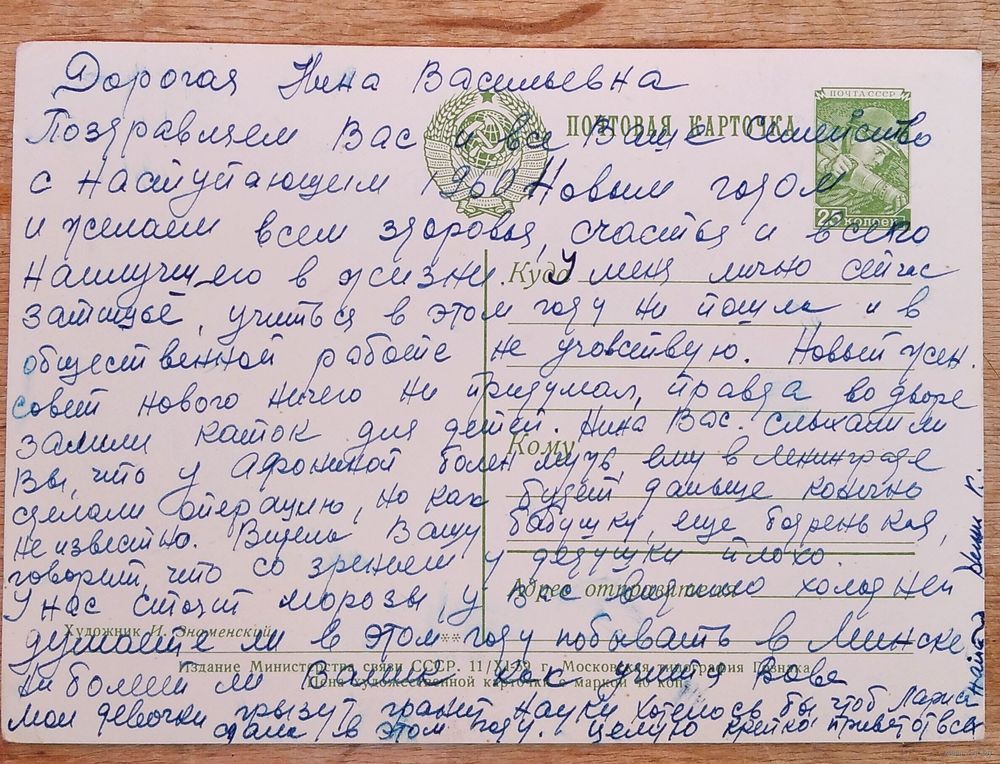 Дорогая Нина Васильевна
ПОЧТА СССР
Поздравляем Вас и все Ваше семейство
ПОЧТОВАЯ КАРТОЧКА
с наступающим Новым годом
25 КОПЕЕК
и желаем всем здоровья, счастья и всего
наилучшего в жизни. У меня лично сейчас
Куда
затишье, учиться в этом году не пошла и в
общественной работе не учавствую. Новый жен.
совет нового ничего не придумал, правда во дворе
залили каток для детей. Нина Вас. слыхали ли
Кому
Вы, что у Афониной болен муж, ему в Ленинграде
сделали операцию, но как будет дальше конечно
неизвестно. Видела Вашу бабушку, еще бодренькая,
говорит, что со зрением у дедушки плохо.
Адрес отправителя
У нас стоят морозы, у Вас холодней
Художник И. Знаменский
думаете ли в этом году побывать в Минске,
Издание Министерства связи СССР. 11/XI-59 г. Московская типография Гознака
Не болеет ли как учится Вова
Цена художественной карточки с маркой 40 коп.
мои девочки грызут гранит науки хотелось бы чтоб
в этом году. Целую крепко привет от всех